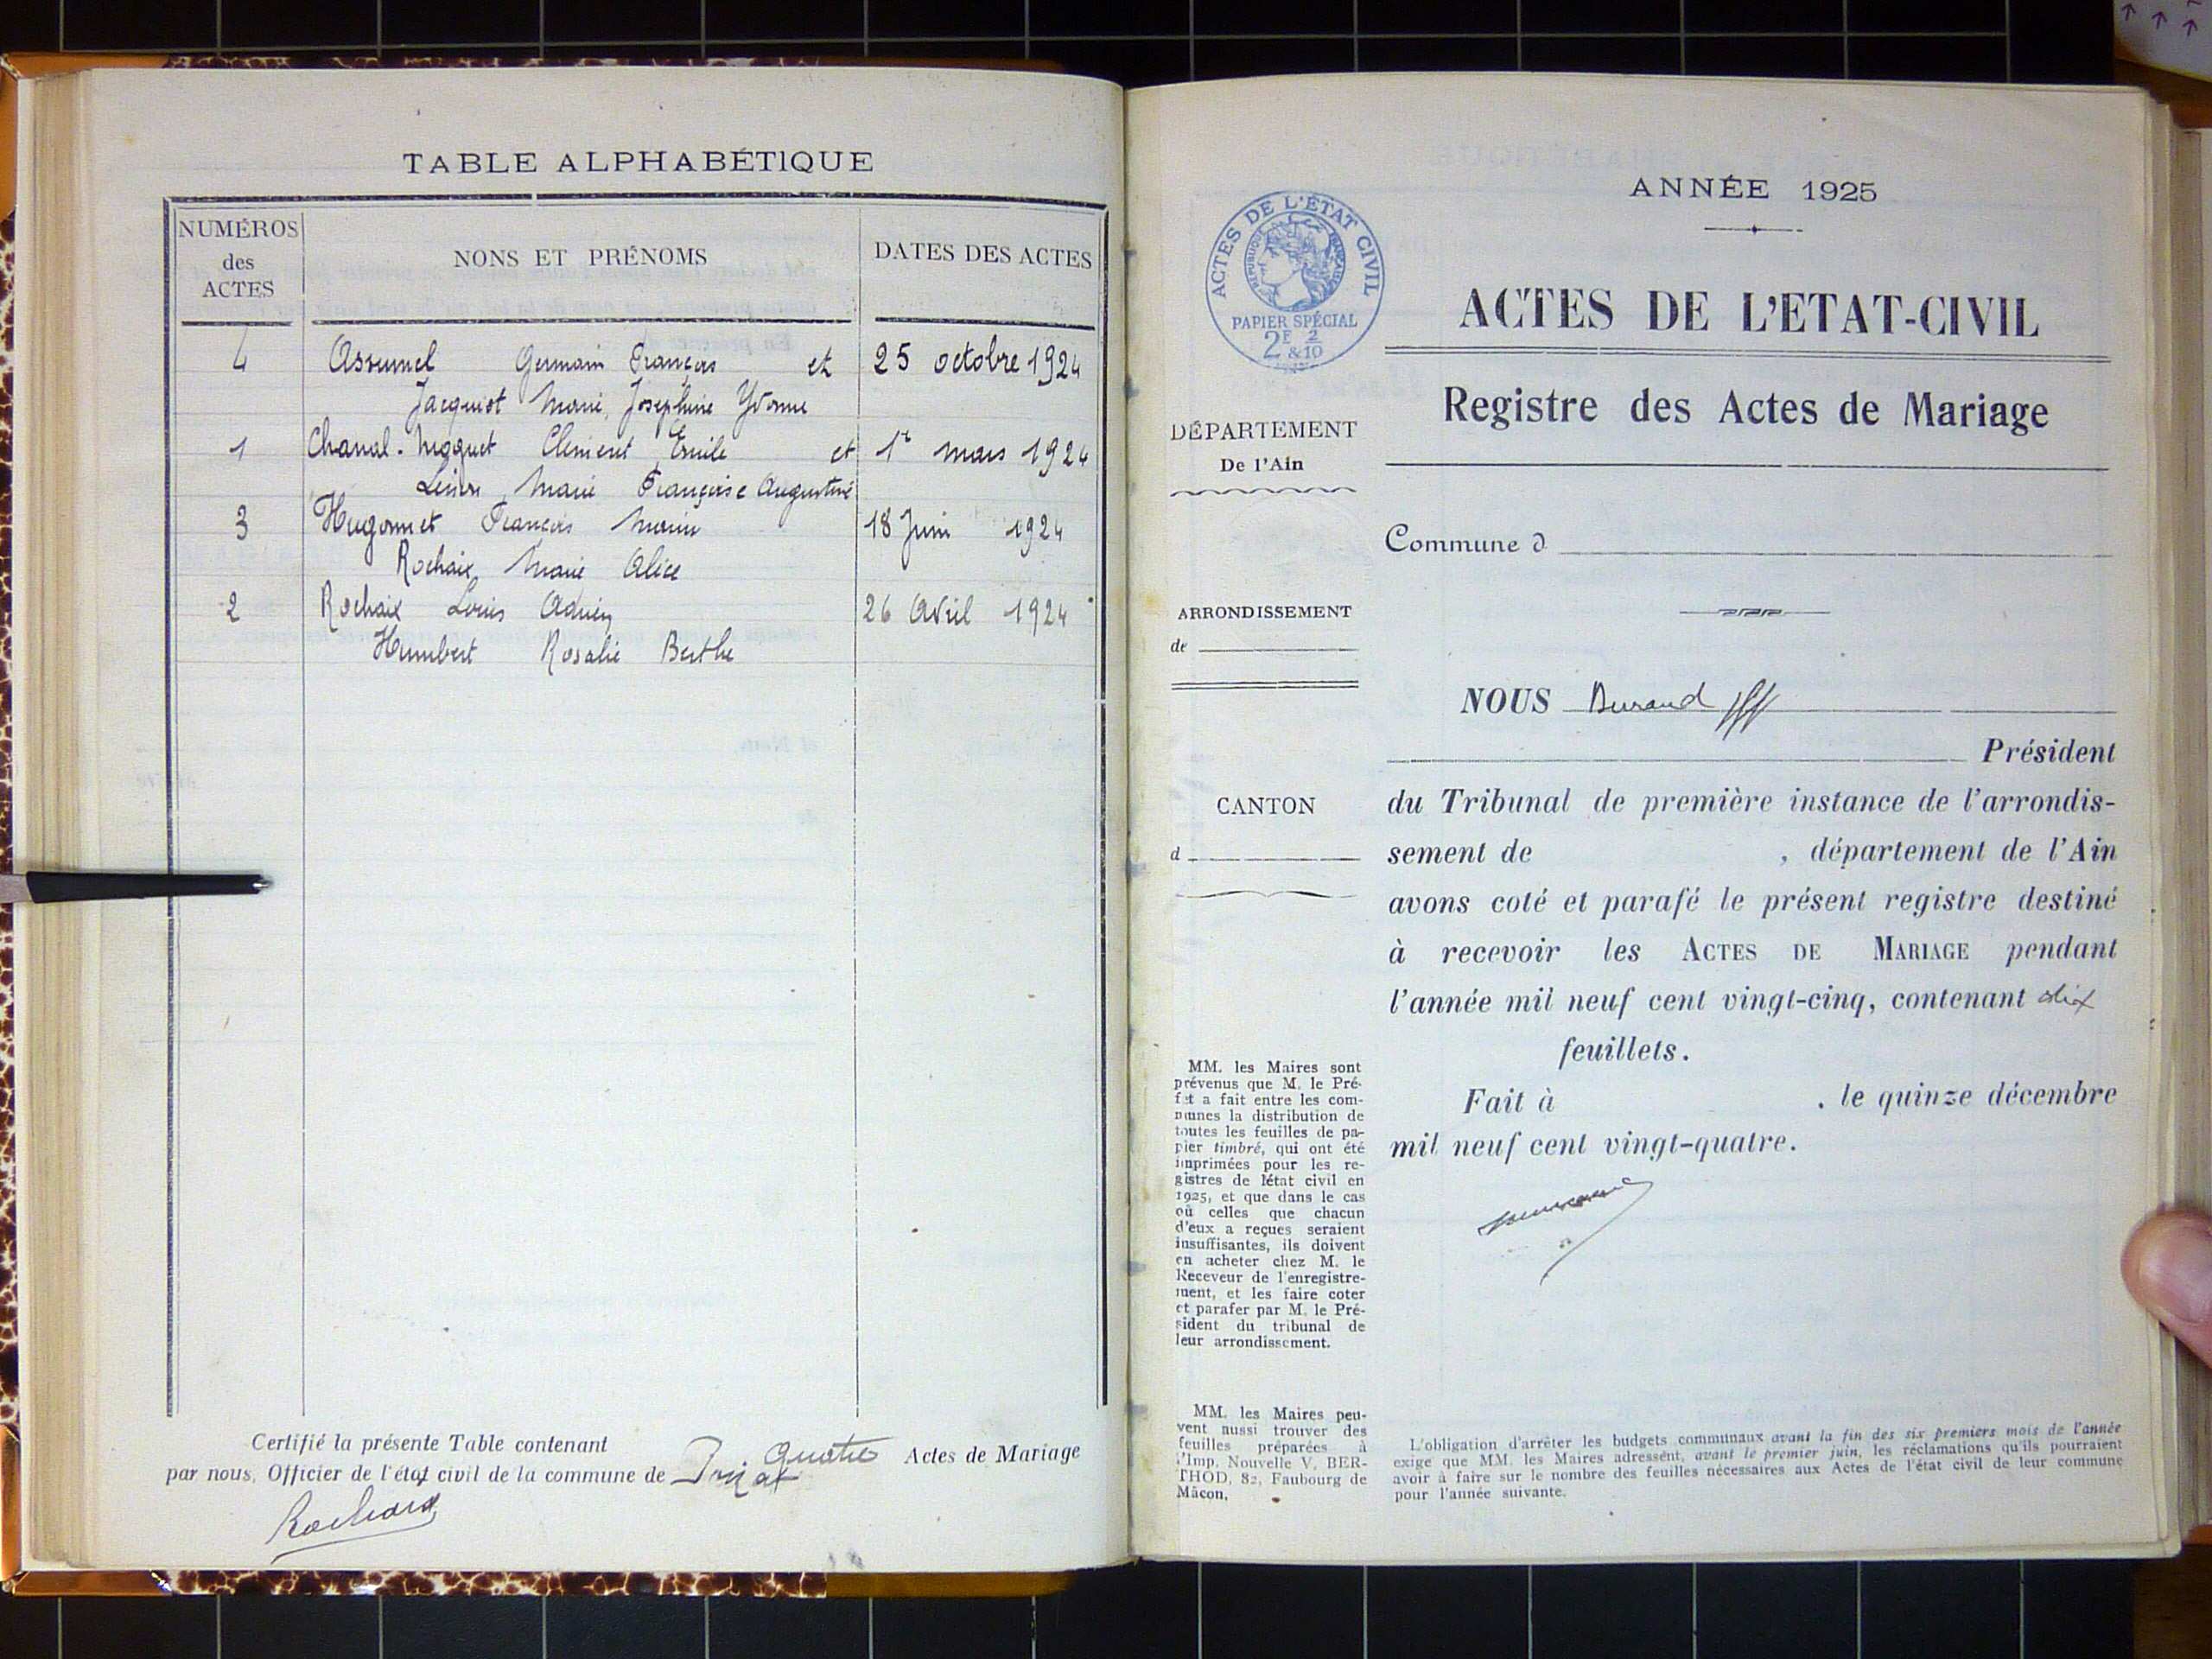 TABLE ALPHABÉTIQUE
NUMÉROS
des
ACTES
NONS ET PRÉNOMS
DATES DES ACTES
4 Assumel Germain François et 25 octobre 1924
Jacquiot Marie, Joséphine Yvonne
1 Chanal-Moquet Clement Emile et 1r mars 1924
Marie Françoise Augustine
3 Hugonnet François Marin 18 Juin 1924
Rochaix Marie Alice
2 Rochaix Louis Adrien 26 Avril 1924
Humbert Rosalie Berthe
Certifié la présente Table contenant quatre Actes de Mariage
par nous, Officier de l'état civil de la commune de
ANNÉE 1925
ACTES DE L'ÉTAT CIVIL
RÉPUBLIQUE FRANÇAISE
PAPIER SPÉCIAL
2E 2
&10
ACTES DE L'ETAT-CIVIL
Registre des Actes de Mariage
DÉPARTEMENT
De l'Ain
Commune d
ARRONDISSEMENT
de
NOUS Durand
Président
CANTON
d
du Tribunal de première instance de l'arrondis-
sement de , département de l'Ain
avons coté et parafé le présent registre destiné
à recevoir les ACTES DE MARIAGE pendant
l'année mil neuf cent vingt-cinq, contenant dix
feuillets.
Fait à , le quinze décembre
mil neuf cent vingt-quatre.
MM. les Maires sont
prévenus que M. le Pré-
fet a fait entre les com-
munes la distribution de
toutes les feuilles de pa-
pier timbré, qui ont été
imprimées pour les re-
gistres de létat civil en
1925, et que dans le cas
où celles que chacun
d'eux a reçues seraient
insuffisantes, ils doivent
en acheter chez M. le
Receveur de l'enregistre-
ment, et les faire coter
et parafer par M. le Pré-
sident du tribunal de
leur arrondissement.
MM. les Maires peu-
vent aussi trouver des
feuilles préparées à
l'Imp. Nouvelle V. BER-
THOD, 82, Faubourg de
Mâcon,
L'obligation d'arrêter les budgets communaux avant la fin des six premiers mois de l'année
exige que MM. les Maires adressent, avant le premier juin, les réclamations qu'ils pourraient
avoir à faire sur le nombre des feuilles nécessaires aux Actes de l'état civil de leur commune
pour l'année suivante.